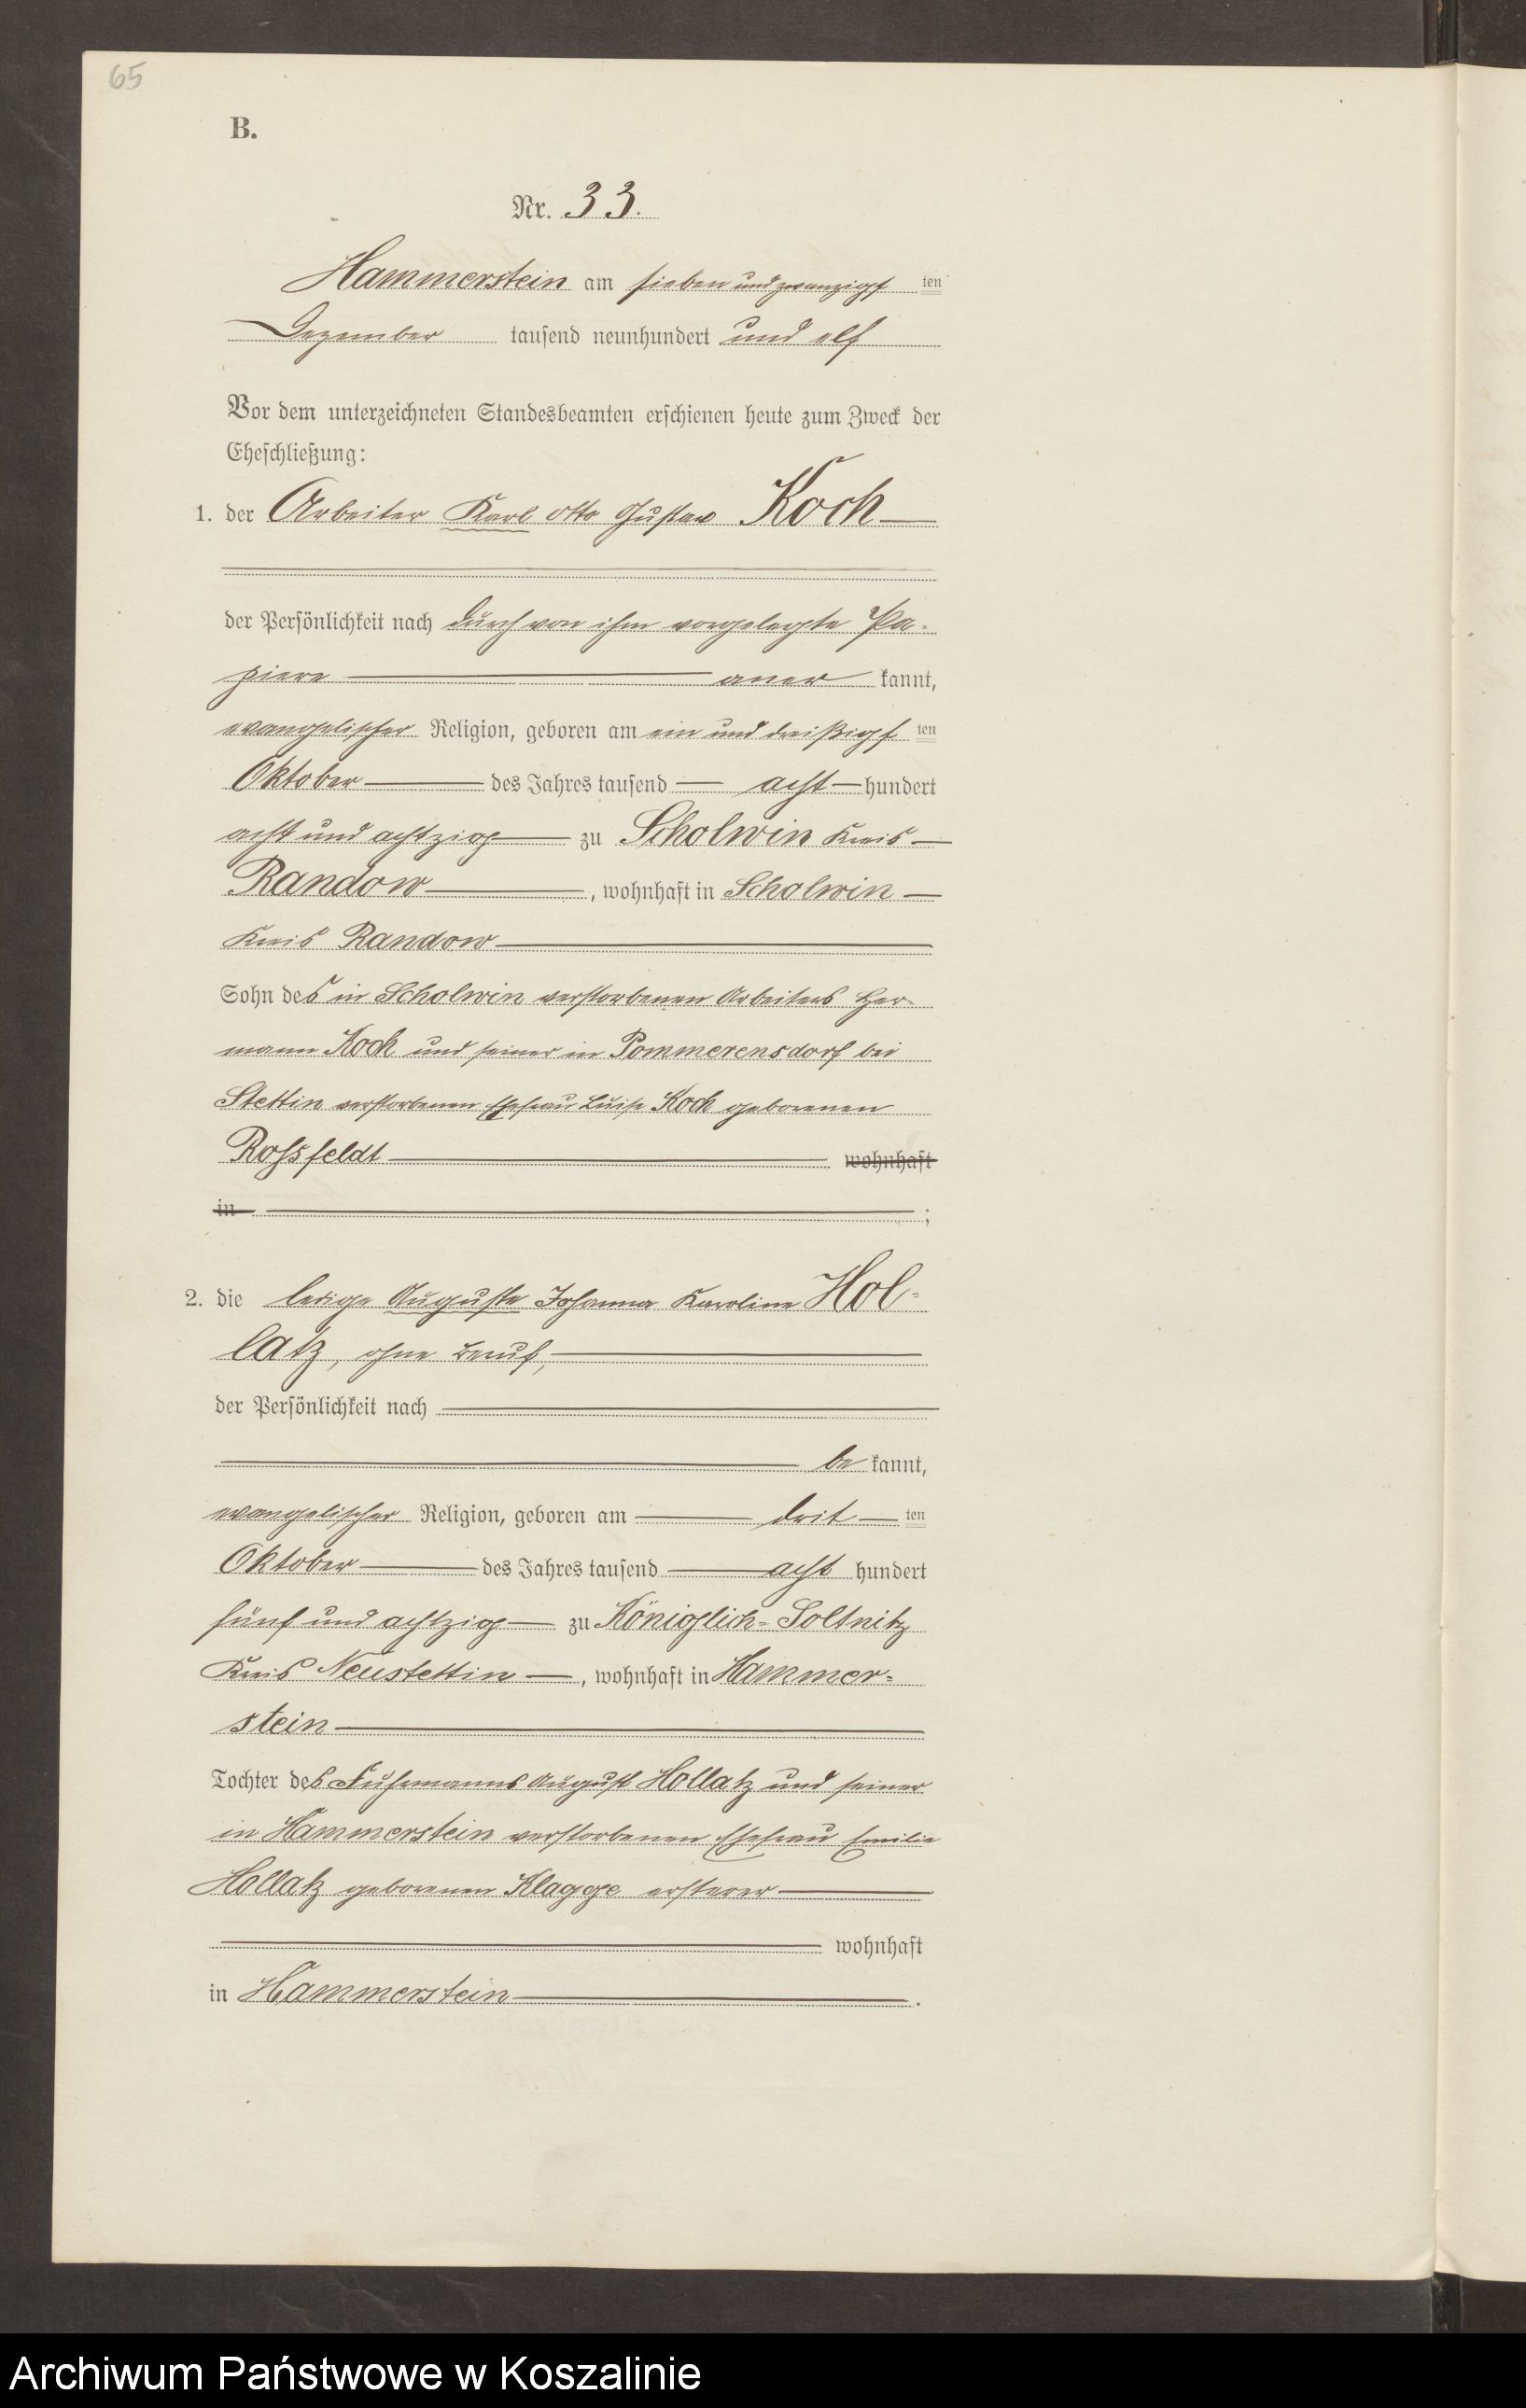 65
B.
Nr. 33.
Hammerstein am sieben und zwanzigsten
Dezember tausend neunhundert und elf
Vor dem unterzeichneten Standesbeamten erschienen heute zum Zweck der
Eheschließung:
1. der Arbeiter Karl Otto Gustav Koch
der Persönlichkeit nach durch von ihm vorgelegte Pa-
piere aner kannt,
evangelischer Religion, geboren am ein und dreißigsten
Oktober des Jahres tausend acht hundert
acht und achtzig zu Scholwin Kreis
Randow, wohnhaft in Scholwin
Kreis Randow
Sohn des in Scholwin verstorbenen Arbeiters Her-
mann Koch und seiner in Pommerensdorf bei
Stettin verstorbenen Ehefrau Luise Koch geborenen
Rossfeldt wohnhaft
in ;
2. die ledige Auguste Johanna Karoline Hol-
latz, ohne Beruf,
der Persönlichkeit nach
be kannt,
evangelischer Religion, geboren am dritten
Oktober des Jahres tausend acht hundert
fünf und achtzig zu Königlich-Soltnitz
Kreis Neustettin, wohnhaft in Hammer-
stein
Tochter des Fuhrmanns August Hollatz und seiner
in Hammerstein verstorbenen Ehefrau Emilie
Hollatz geborenen Klagge ersterer
wohnhaft
in Hammerstein.
Archiwum Państwowe w Koszalinie